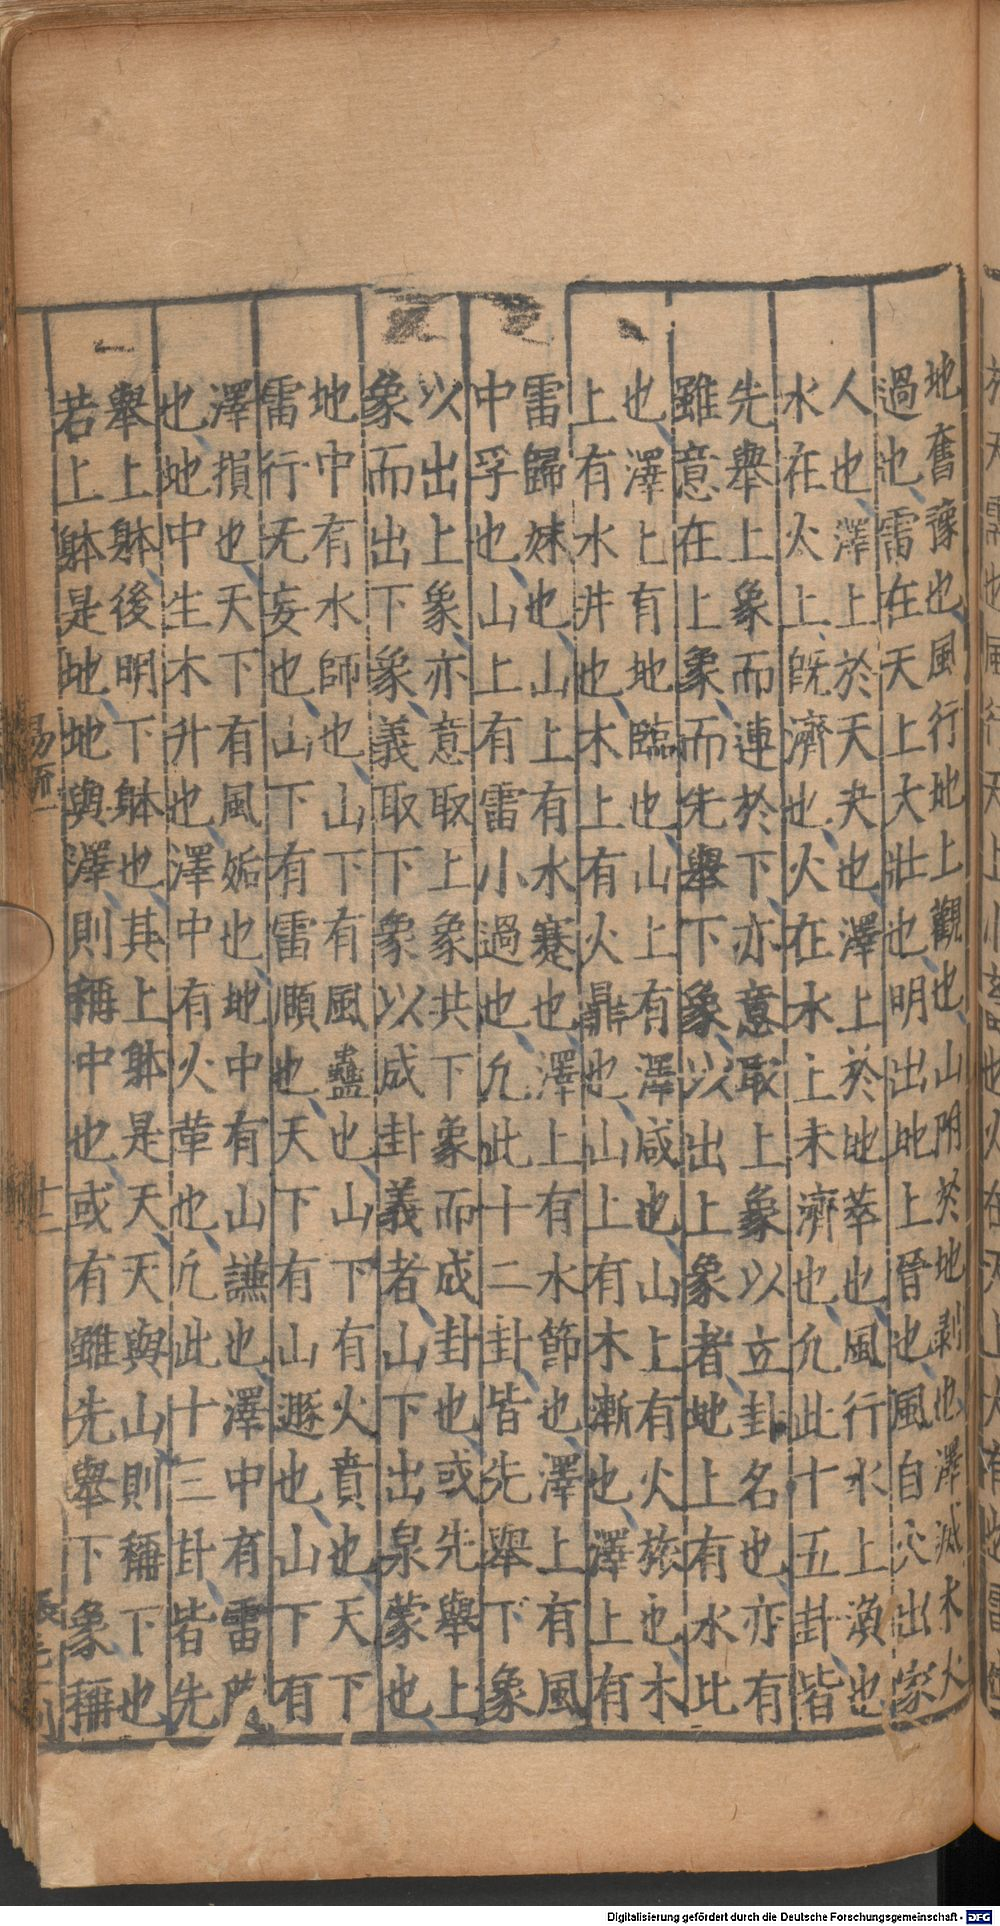 地奮豫也風行地上觀也山附於地剥也澤滅木大
過也雷在天上大壯也明出地上晉也風自火出家
人也澤上於天夬也澤上於地萃也風行水上渙也
水在火上旣濟也火在水上未濟也凢此十五卦皆
先舉上象而連於下亦意取上象以立卦名也亦有
雖意在上象而先舉下象以出上象者地上有水比
也澤上有地臨也山上有澤咸也山上有火旅也木
上有水井也木上有火鼎也山上有木漸也澤上有
雷歸妹也山上有水蹇也澤上有水節也澤上有風
中孚也山上有雷小過也凢此十二卦皆先舉下象
以出上象亦意取上象共下象而成卦也或先舉上
象而出下象義取下象以成卦義者山下出泉蒙也
地中有水師也山下有風蠱也山下有火賁也天下
雷行无妄也山下有雷頤也天下有山遯也山下有
澤損也天下有風姤也地中有山謙也澤中有雷
也地中生木升也澤中有火革也凢此十三卦皆先
舉上躰後明下躰也其上躰是天天與山則稱下也
若上躰是地地與澤則稱中也或有雖先舉下象稱
易疏一
十二
Digitalisierung gefördert durch die Deutsche Forschungsgemeinschaft - DFG